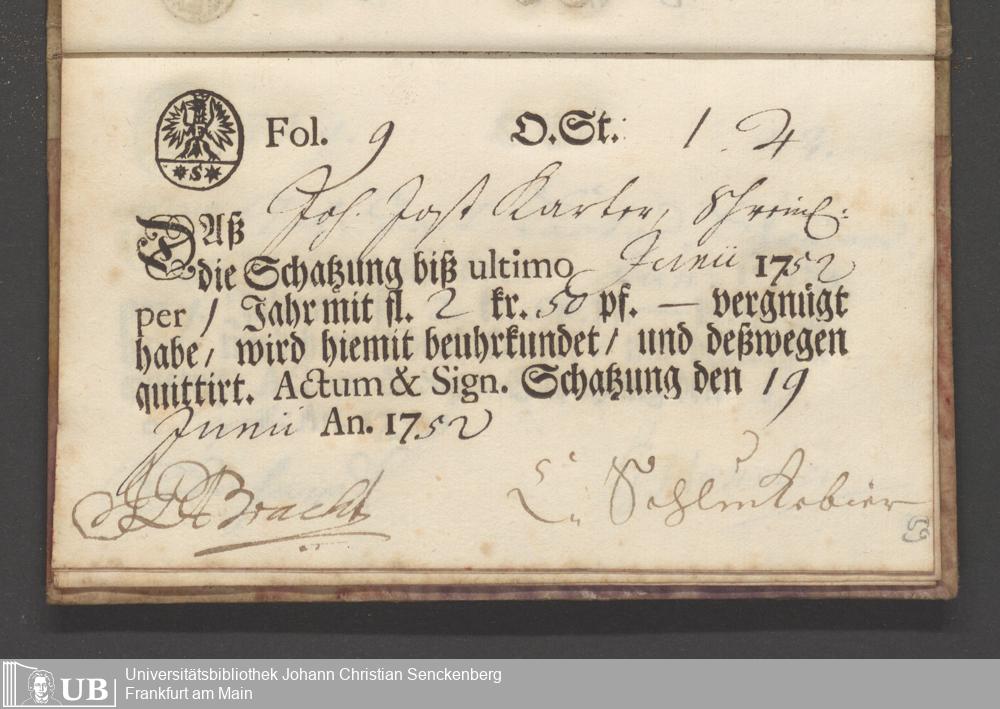 Fol. 9 O.St: 1. 4
Daß Joh. Jost Karter, Schreinr:
die Schatzung biß ultimo Junii 1752
per 1 Jahr mit fl. 2 kr. 50 pf. — vergnügt
habe/ wird hiemit beuhrkundet/ und deßwegen
quittirt. Actum & Sign. Schatzung den 19
Junii An. 1752
Bracht
Schluckebier
S
UB
Universitätsbibliothek Johann Christian Senckenberg
Frankfurt am Main